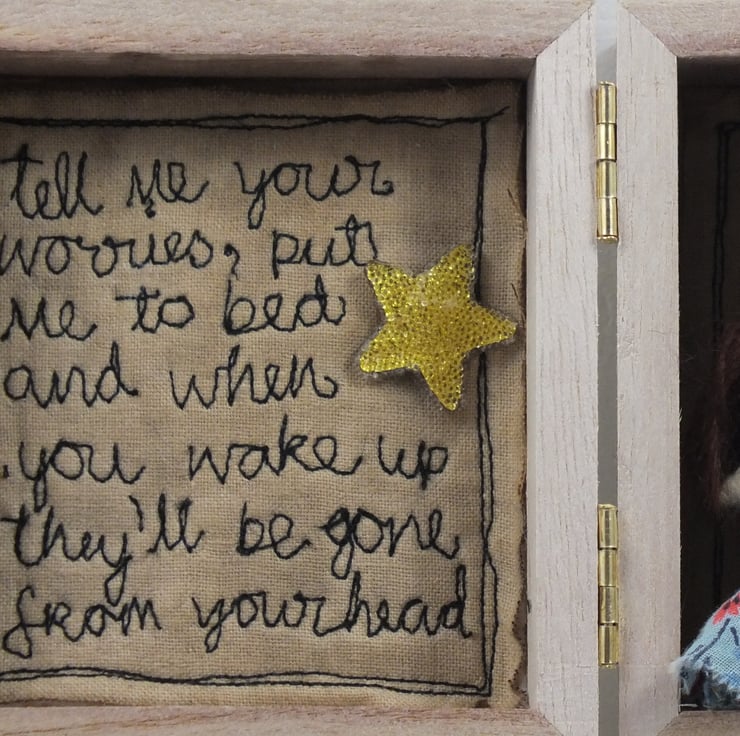 tell me your
worries, put
me to bed
and when
you wake up
they'll be gone
from your head